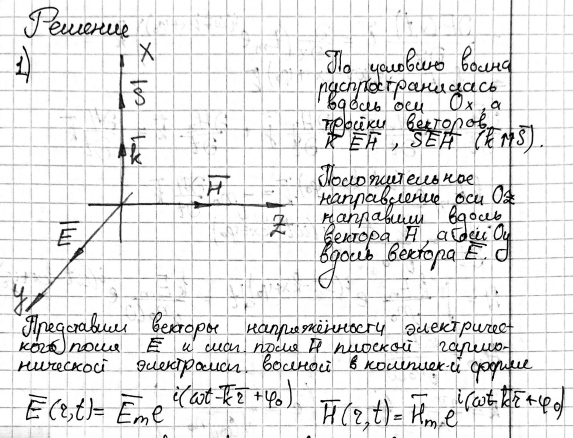 Решение
1)
X
S̅
k̅
H̅
Z
E̅
y
По условию волна
распространялась
вдоль оси Ox, а
тройки векторов
k̅ E̅H̅, S̅E̅H̅ (k̅⇈S̅).
Положительное
направление оси Oz
направим вдоль
вектора H̅, а оси Oy
вдоль вектора E̅.
Представим векторы напряжённости электричес-
кого поля E̅ и маг. поля H̅ плоской гармо-
нической электромаг. волной в комплек-й форме
E̅(r,t) = E̅m e^i(ωt-k̅r̅+φ₀) H̅(r,t) = H̅m e^i(ωt-k̅r̅+φ₀)